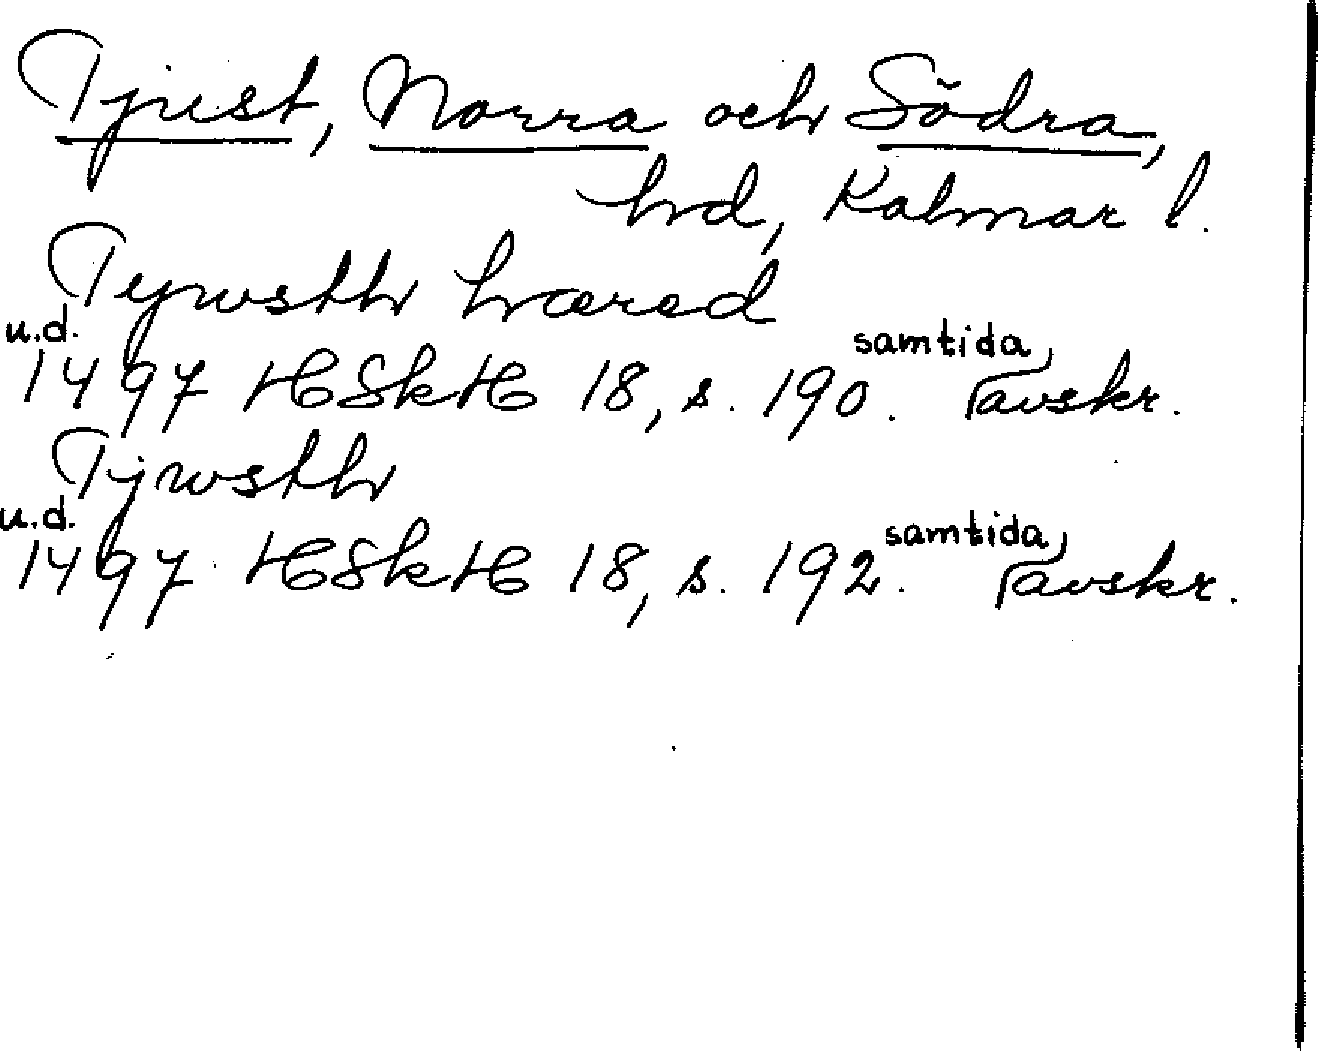 Tjust, Norra och Södra,
hd, Kalmar l.
Tywsth hæred
u.d. samtida
1497 HSkH 18, s. 190. avskr.
Tjwsth
u.d. samtida
1497 HSkH 18, s. 192. avskr.